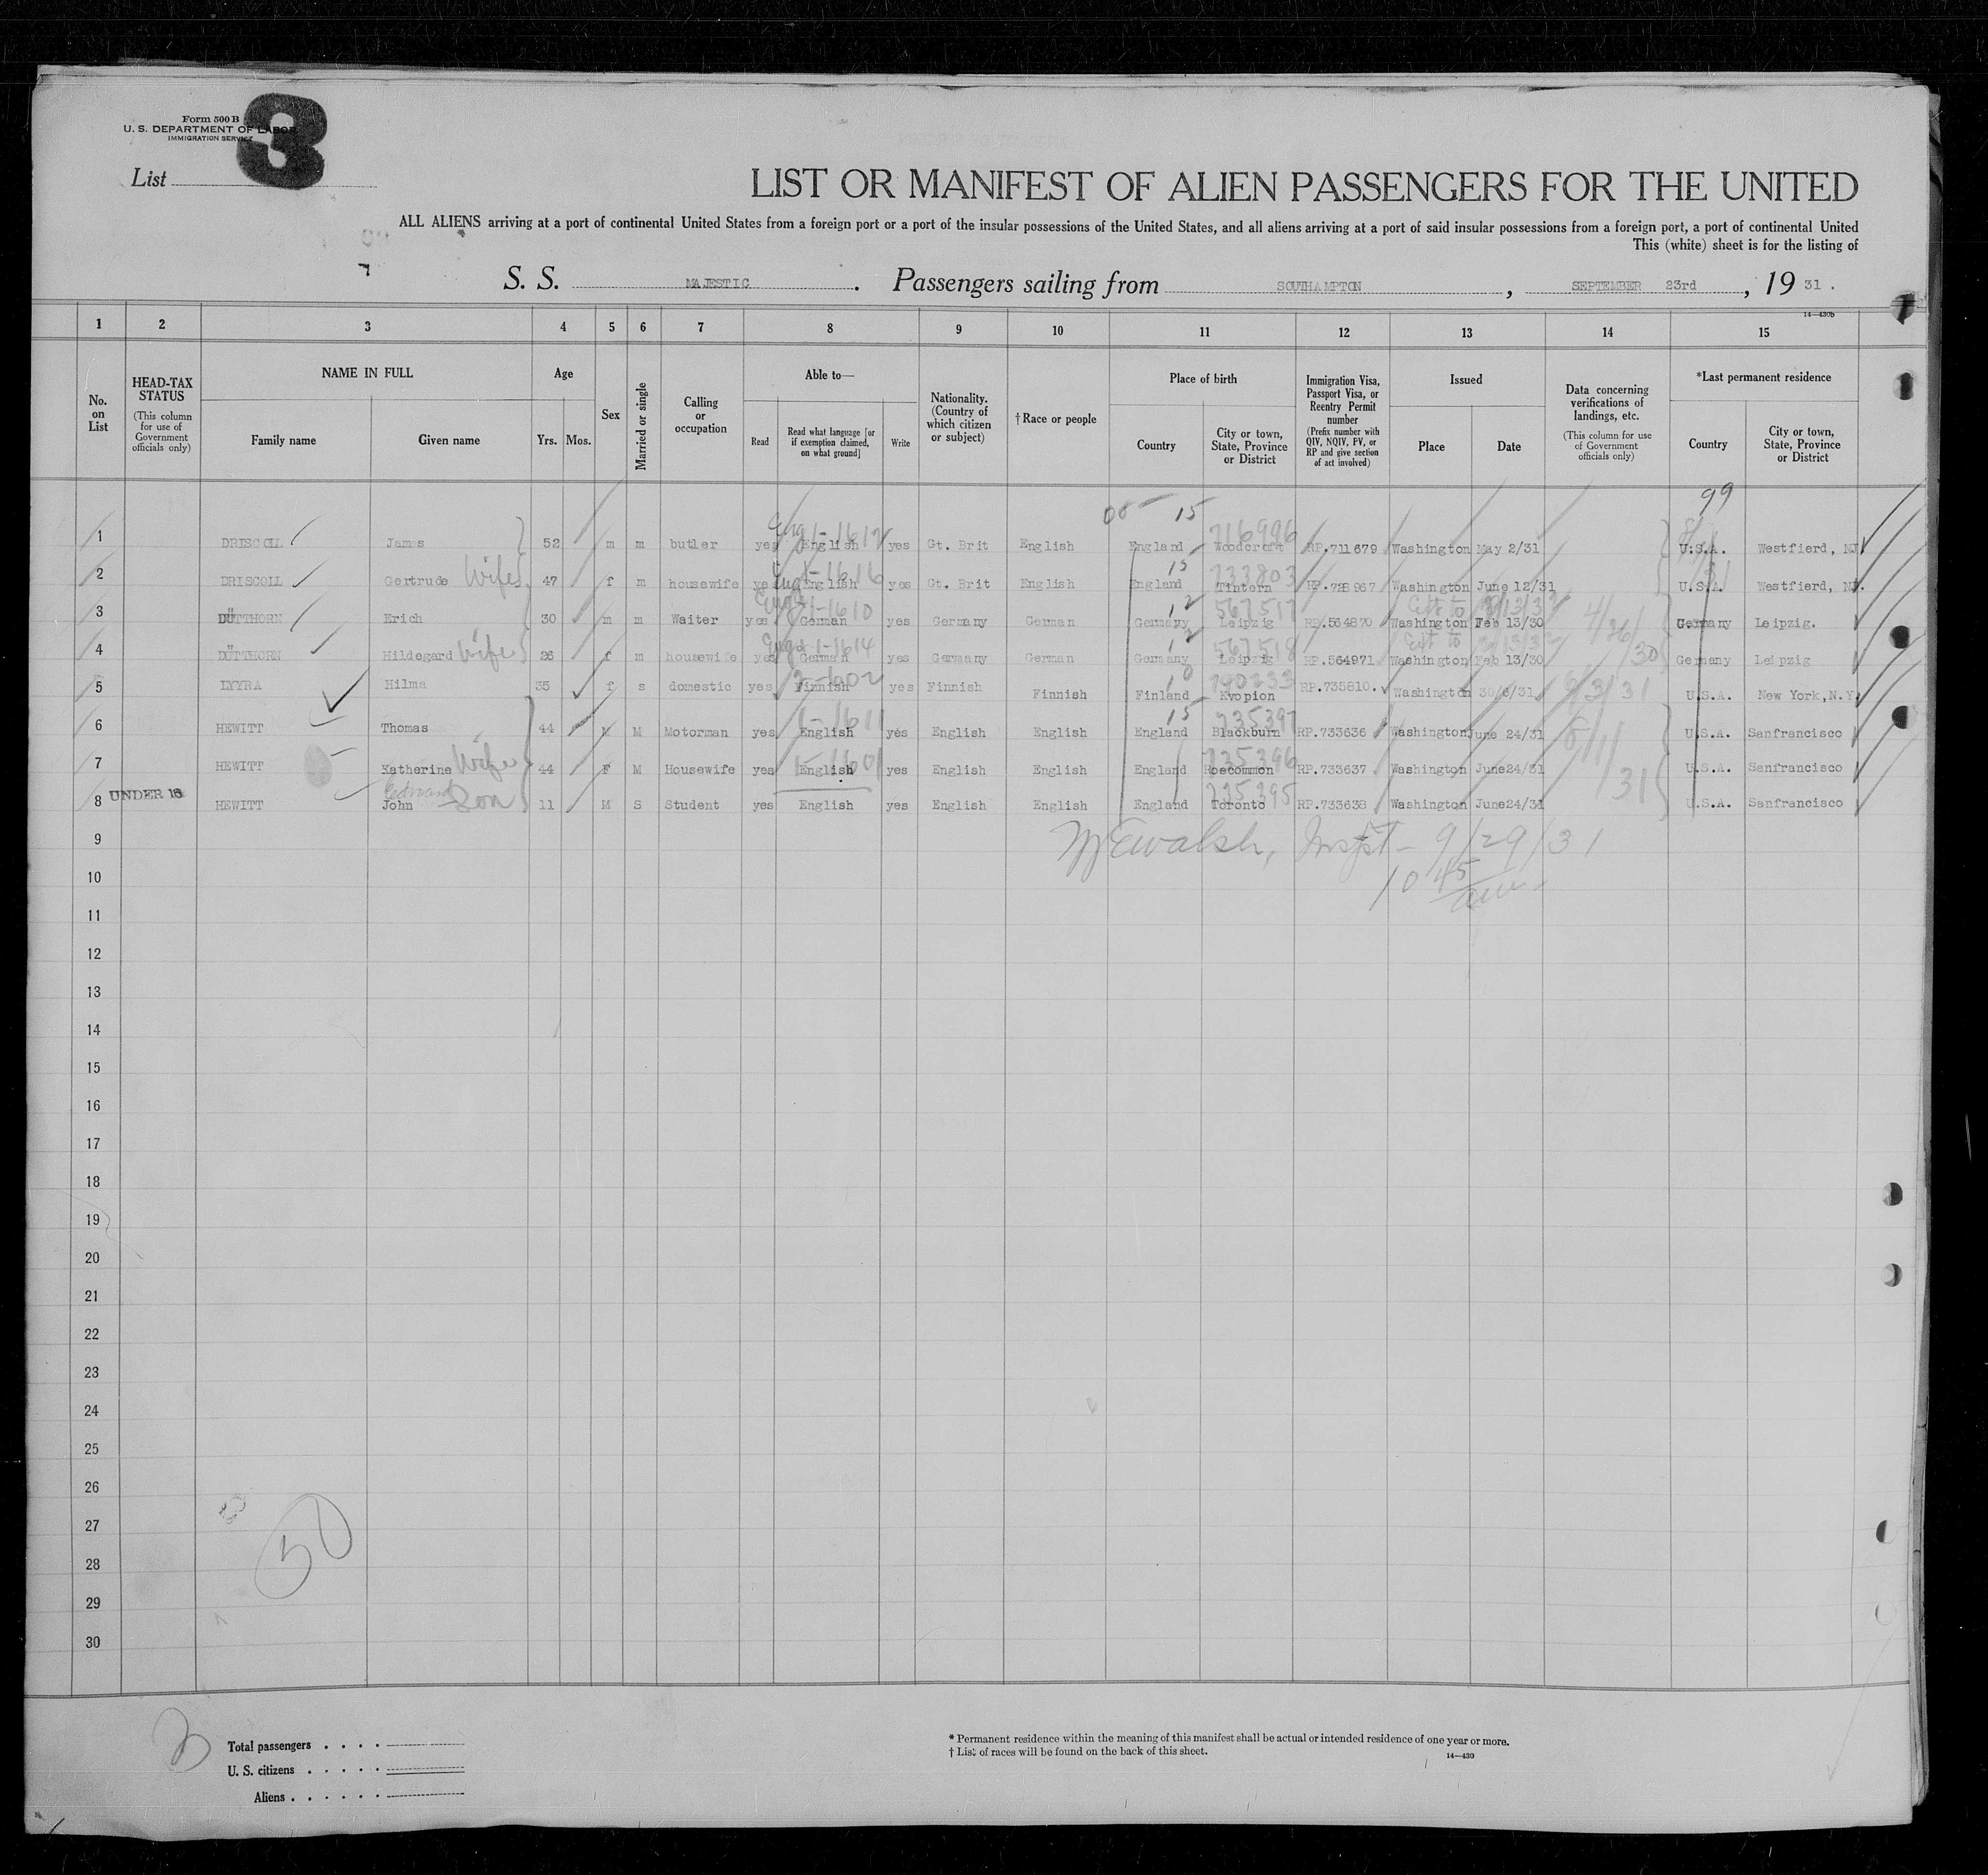 Form 500 B
U. S. DEPARTMENT OF LABOR
IMMIGRATION SERVICE
3
List
LIST OR MANIFEST OF ALIEN PASSENGERS FOR THE UNITED
ALL ALIENS arriving at a port of continental United States from a foreign port or a port of the insular possessions of the United States, and all aliens arriving at a port of said insular possessions from a foreign port, a port of continental United
This (white) sheet is for the listing of
S. S. MAJESTIC. Passengers sailing from SOUTHAMPTON, SEPTEMBER 23rd, 19 31.
14—430b
1 2 3 4 5 6 7 8 9 10 11 12 13 14 15
No. on List
HEAD-TAX STATUS
(This column for use of Government officials only)
NAME IN FULL
Family name
Given name
Age
Yrs.
Mos.
Sex
Married or single
Calling or occupation
Able to—
Read
Read what language [or if exemption claimed, on what ground]
Write
Nationality. (Country of which citizen or subject)
†Race or people
Place of birth
Country
City or town, State, Province or District
Immigration Visa, Passport Visa, or Reentry Permit number
(Prefix number with QIV, NQIV, PV, or RP and give section of act involved)
Issued
Place
Date
Data concerning verifications of landings, etc.
(This column for use of Government officials only)
*Last permanent residence
Country
City or town, State, Province or District
99
15
716996
1 DRISCOLL James 52 m m butler yes English yes Gt. Brit English England Woodcroft RP.711679 Washington May 2/31 U.S.A. Westfierd, NJ
1-1616 15 733803
2 DRISCOLL Gertrude Wife 47 f m housewife yes English yes Gt. Brit English England Tintern RP.728967 Washington June 12/31 U.S.A. Westfierd, NJ.
1-1610 12 567517 Ext to
3 DÜTTHORN Erich 30 m m Waiter yes German yes Germany German Germany Leipzig RP.564870 Washington Feb 13/30 Germany Leipzig.
1-1614 12 567518 Ext to 4/26/30
4 DÜTTHORN Hildegard Wife 26 f m housewife yes German yes Germany German Germany Leipzig RP.564971 Washington Feb 13/30 Germany Leipzig
2-602 10 740233
5 LYYRA Hilma 35 f s domestic yes Finnish yes Finnish Finnish Finland Kvopion RP.735810. Washington 30/6/31 U.S.A. New York, N.Y.
1-1611 15 735397
6 HEWITT Thomas 44 M M Motorman yes English yes English English England Blackburn RP.733636 Washington June 24/31 U.S.A. Sanfrancisco
1-1601 735396 8/1/31
7 HEWITT Katherine Wife 44 F M Housewife yes English yes English English England Roscommon RP.733637 Washington June24/31 U.S.A. Sanfrancisco
Edward 735395
8 UNDER 16 HEWITT John Son 11 M S Student yes English yes English English England Toronto RP.733638 Washington June24/31 U.S.A. Sanfrancisco
9 Walsh, Inspt - 9/29/31
10 10 45 am
11
12
13
14
15
16
17
18
19
20
21
22
23
24
25
26
27
50
28
29
30
Total passengers . . . .
U. S. citizens . . . . .
Aliens . . . . . .
* Permanent residence within the meaning of this manifest shall be actual or intended residence of one year or more.
† List of races will be found on the back of this sheet.
14—430